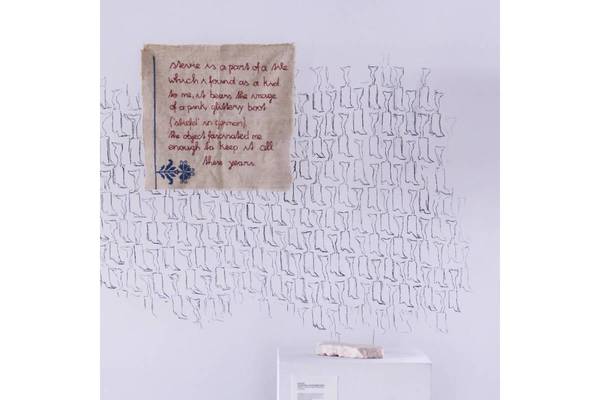 stevie is a part of a tile
which i found as a kid
to me, it bears the image
of a pink glittery boot
('stiefel' in german).
the object fascinated me
enough to keep it all
these years.